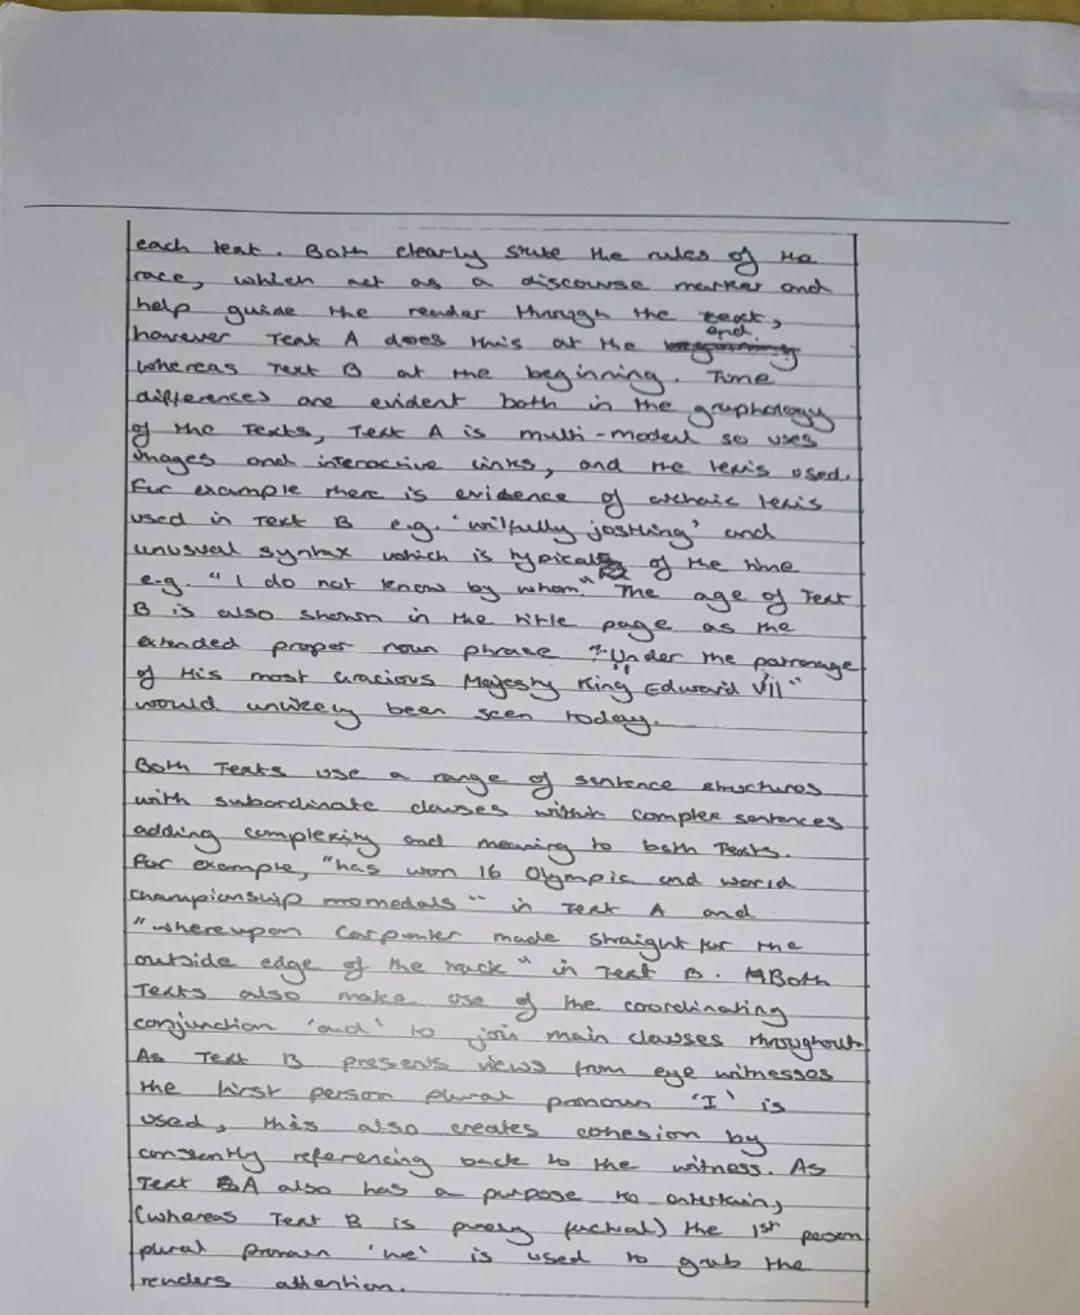 each text. Both clearly state the rules of the
race, which act as a discourse marker and
help guide the reader through the text,
however Text A does this at the end
whereas Text B at the beginning. Time
differences are evident both in the graphology
of the Texts, Text A is multi-modal so uses
images and interactive links, and the lexis used.
For example there is evidence of archaic lexis
used in Text B e.g. 'wilfully jostling' and
unusual syntax which is typical of the time
e.g. "I do not know by whom." The age of Text
B is also shown in the title page as the
extended proper noun phrase "Under the patronage
of His most Gracious Majesty King Edward VII"
would unlikely been seen today.
Both Texts use a range of sentence structures
with subordinate clauses within complex sentences
adding complexity and meaning to both Texts.
For example, "has won 16 Olympic and world
championship momedals" in Text A and
"whereupon Carpenter made straight for the
outside edge of the track" in Text B. Both
Texts also make use of the coordinating
conjunction 'and' to join main clauses throughout.
As Text B presents views from eye witnesses
the first person plural pronoun 'I' is
used, this also creates cohesion by
consently referencing back to the witness. As
Text A also has a purpose to entertain,
(whereas Text B is purely factual) the 1st person
plural pronoun 'we' is used to grab the
readers attention.